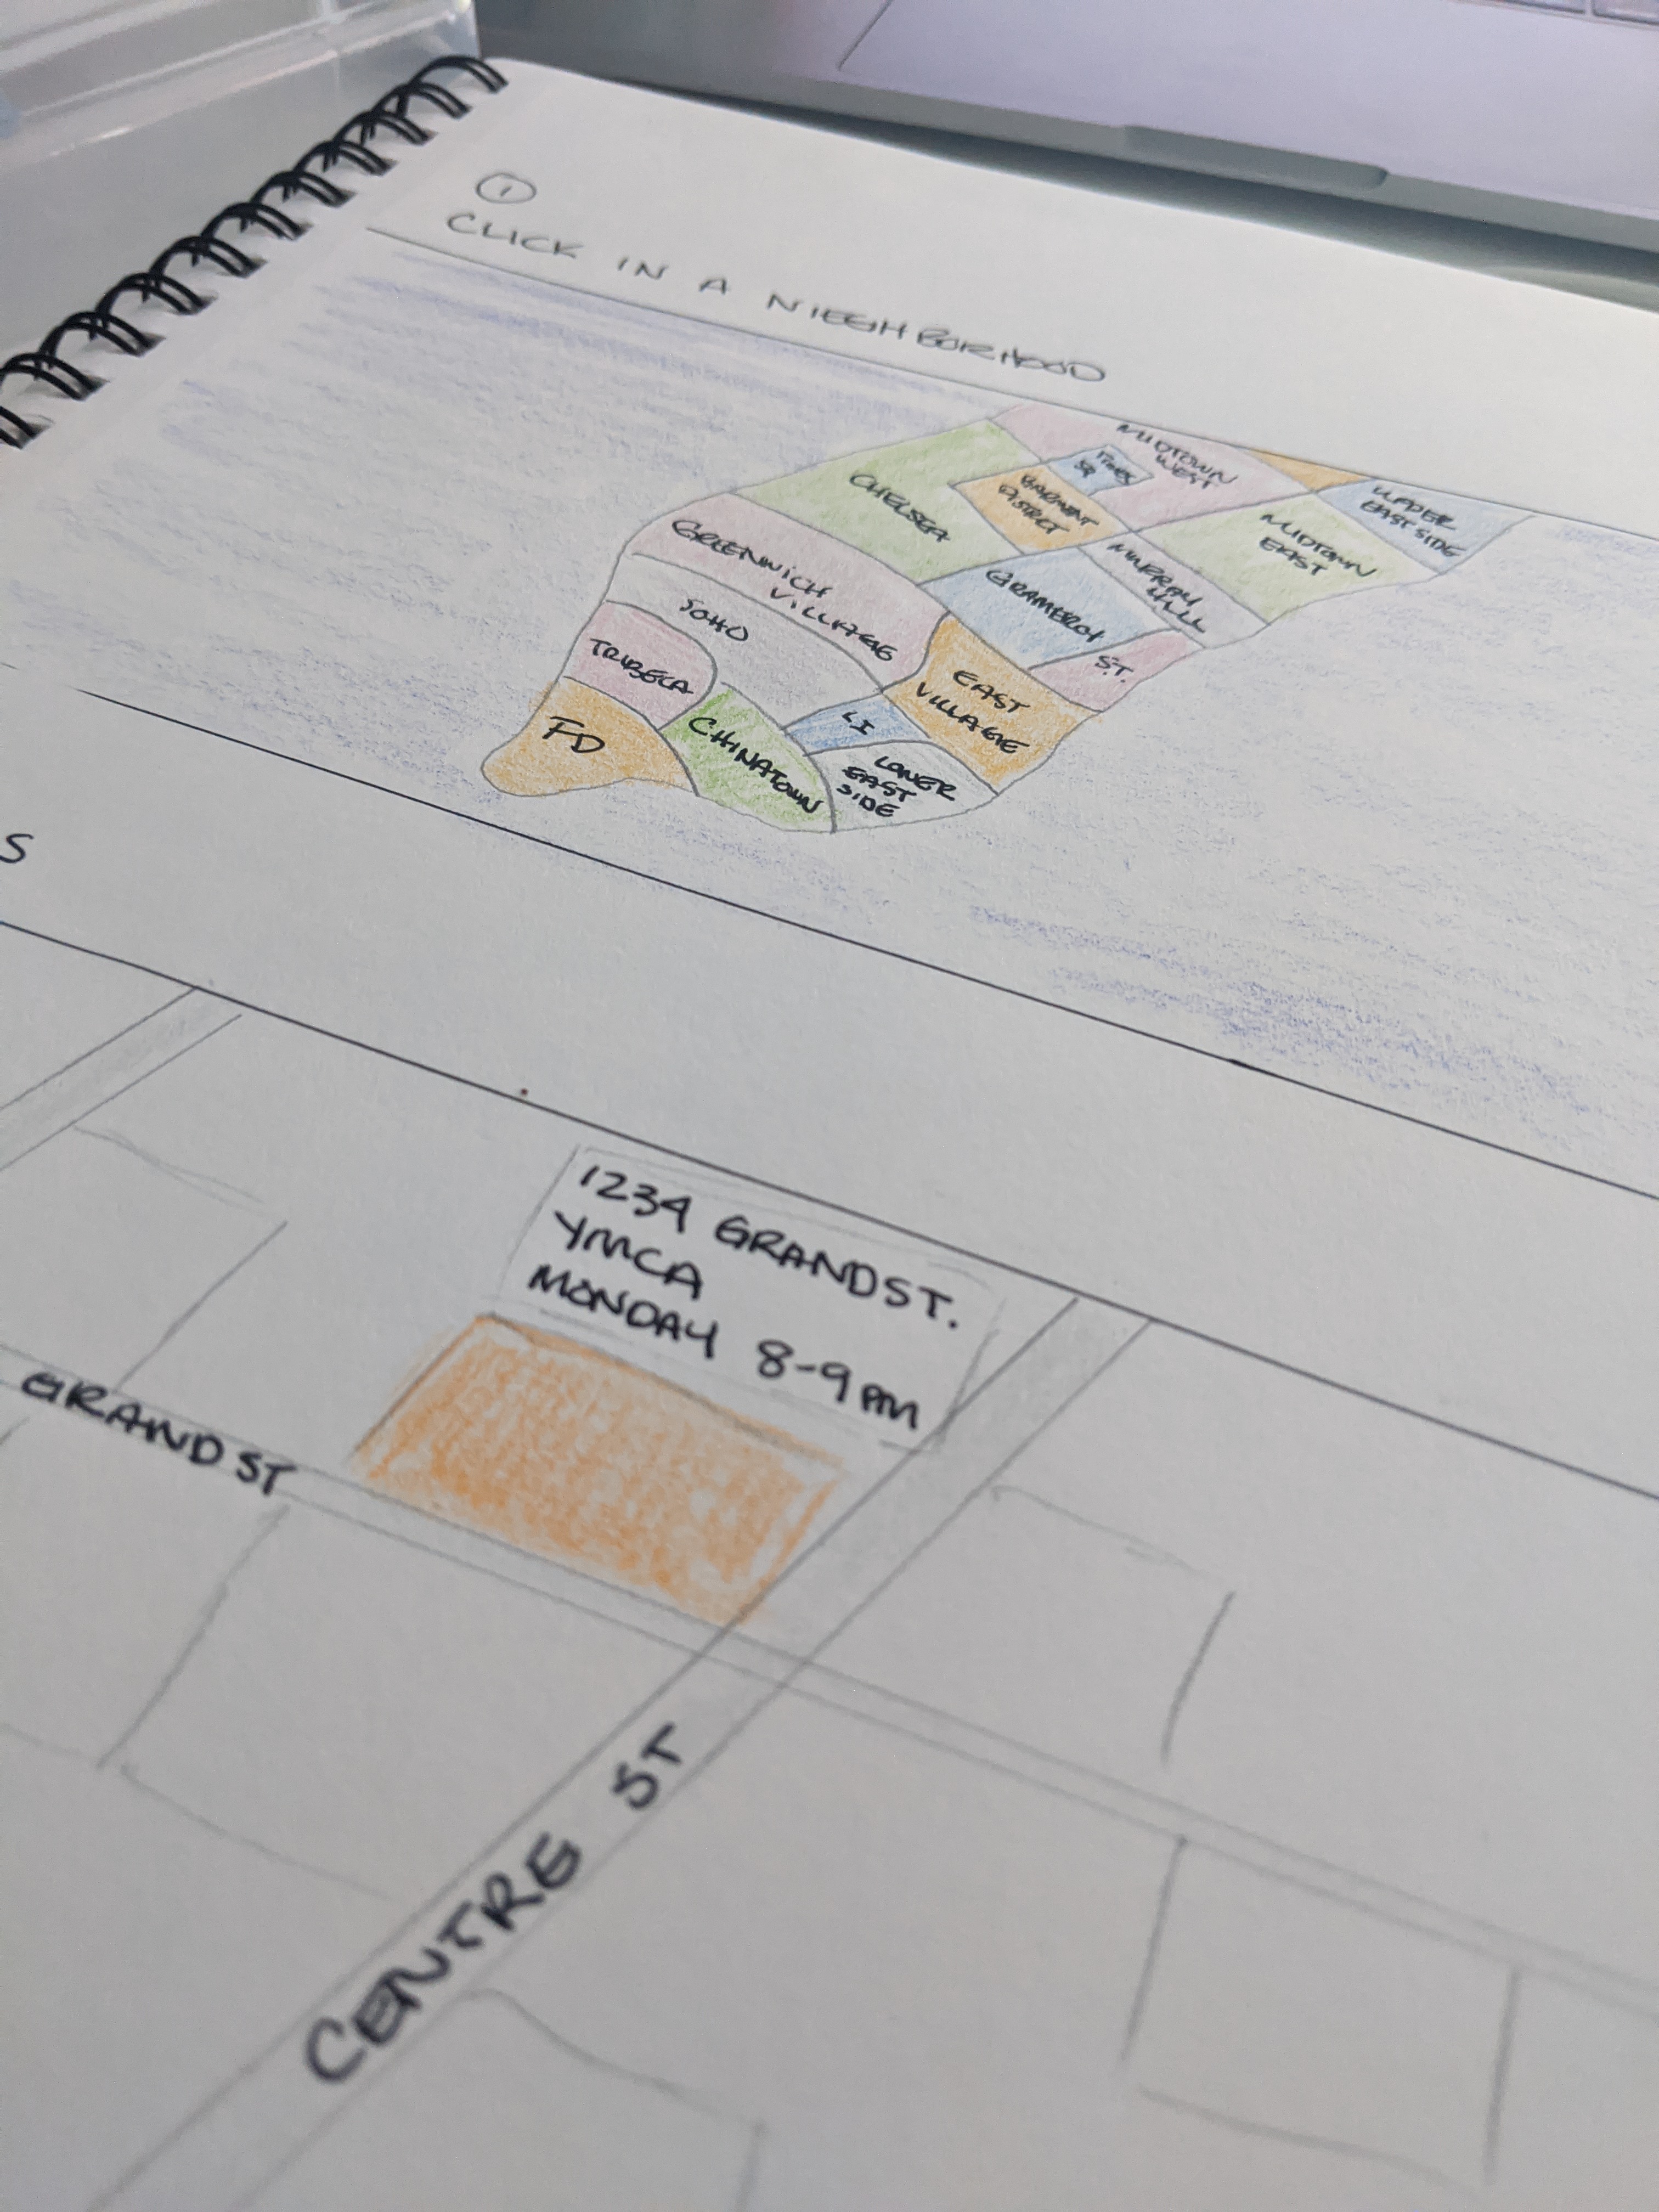 1
CLICK IN A NIEGHBORHOOD
MIDTOWN
WEST
TIMES
SQ
UPPER
EAST SIDE
CHELSEA
GARMENT
DISTRICT
MIDTOWN
EAST
MURRAY
HILL
GREENWICH
VILLAGE
GRAMERCY
SOHO
ST.
TRIBECA
EAST
VILLAGE
LI
FD
CHINATOWN
LOWER
EAST
SIDE
S
1234 GRAND ST.
YMCA
MONDAY 8-9 PM
GRAND ST
CENTRE ST